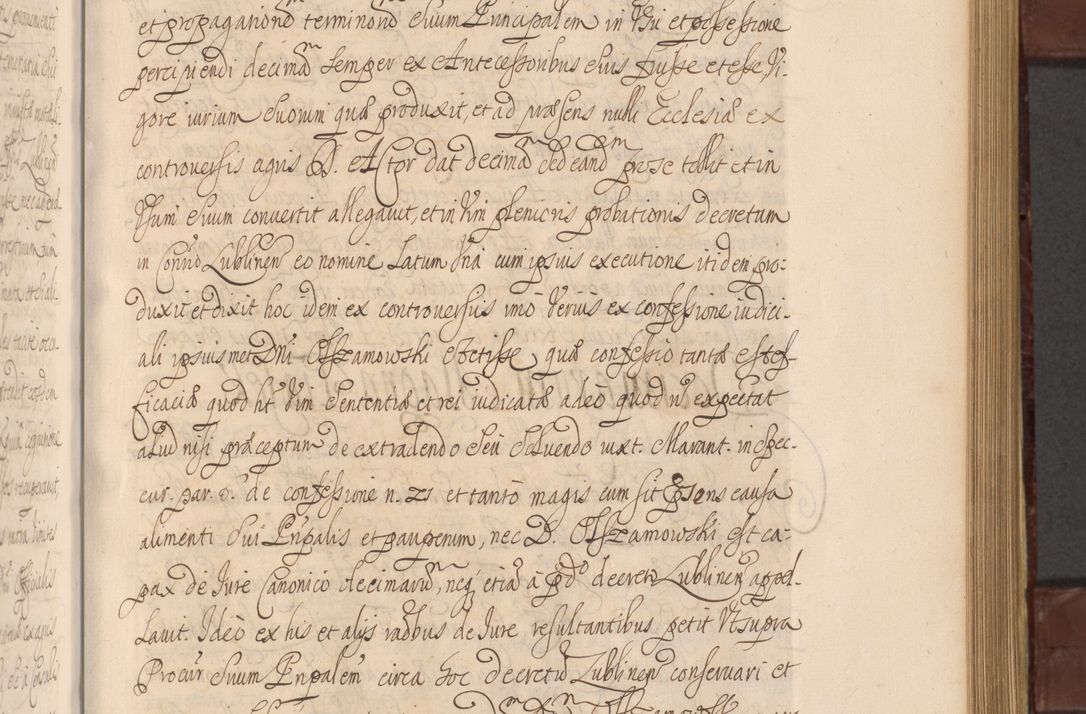 et propagationū terminorū suum Principalem in Usu et possessione
percipiendi decimā semper ex Antecessoribus suis fuisse et esse, Vi-
gore iurium suorum quæ produxit, et ad præsens nulli Ecclesiæ ex
controversis agris D. Actor dat decimā sed eand prose tollit et in
Usum suum convertit allegavit, et in Vim plenioris probationis decretum
in Conŭo Lublinen eo nomine Latum Unā cum ipsius executione itidem pro-
duxit et dixit hoc idem ex controversiis imò Verius ex confessione iudici-
ali ipsiusmet Dni Olszamowski stetisse, quæ confessio tantæ est ef-
ficaciæ quod ht Vim Sententiæ et rei iudicatæ adeò quod n̄ expectat
aliud nisi præceptum de extradendo seu Solvendo iuxt. Marant. in spec.
cur. par. 6. de confessione n. 25 et tantò magis cum sit psens causa
alimenti sui Pnpalis et pauperum, nec D. Olszamowski est ca-
pax de Iure Canonico decimarū, neq etiā à pdo decreto Lublinen appel-
lavit. Ideò ex his et alijs raōbus de Iure resultantibus petit Ut supra
Procur suum Pnpalem circa hoc decretū Lublinen conservari et